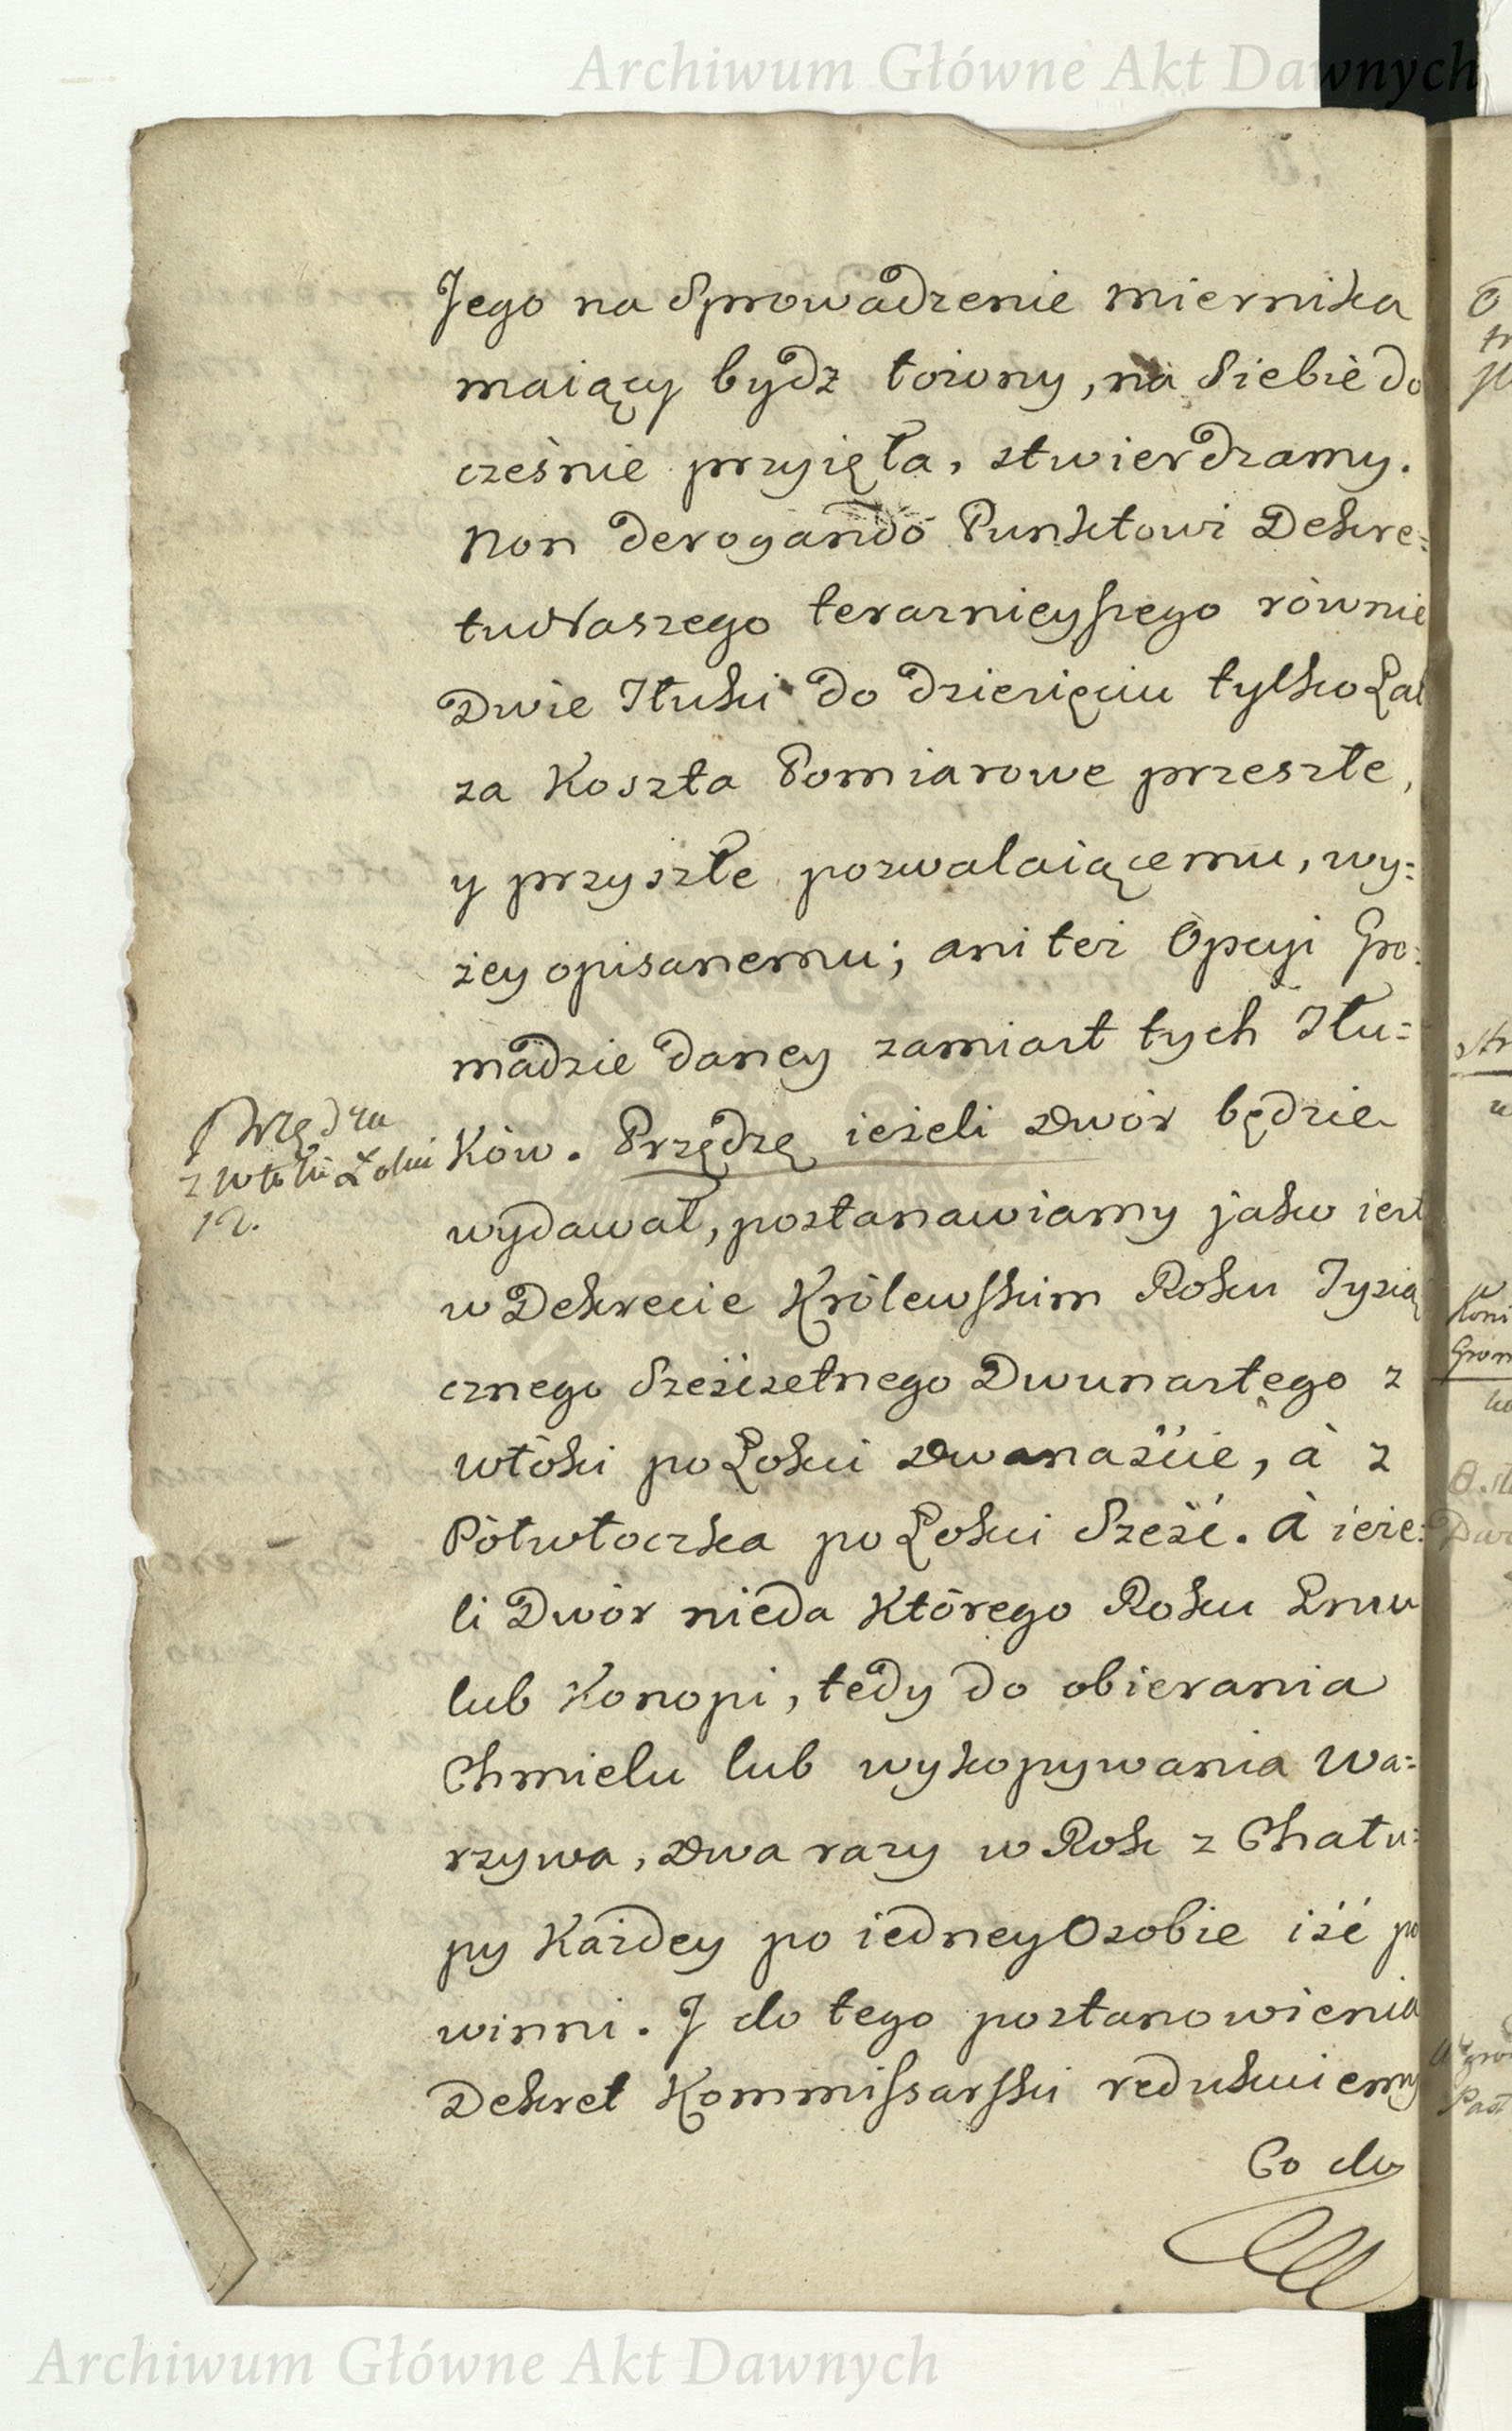 Archiwum Główne Akt Dawnych
Jego na Sprowadzenie miernika
maiący bydz łożony, na Siebie do
cześnie przyięła, stwierdzamy.
Non derogando Punktowi Dekre=
tu Naszego teraznieyszego równie
Dwie Sztuki do dziesięciu tylko Lat
za Koszta Pomiarowe przeszłe,
y przyszłe pozwalaiącemu, wy=
żey opisanemu; ani też Opcyi Gro=
madzie daney zamiast tych Sztu=
ków. Przędzę ieżeli Dwór będzie
wydawał, postanawiamy jako iest
w Dekrecie Królewskim Roku Tysią
cznego Sześćsetnego Dwunastego z
włóki po Łokci Dwanaście, à z
Półwłoczka po Łokci Sześć. à ieże=
li Dwór nieda Którego Roku Lnu
lub Konopi, tedy do obierania
Chmielu lub wykopywania Wa=
rzywa, Dwa razy w Rok z Chału=
py Każdey po iedney Osobie iść po
winni. J do tego postanowienia
Dekret Kommissarski redukuiemy
Co do
Przędza
z włóki Łokci
12.
Archiwum Główne Akt Dawnych